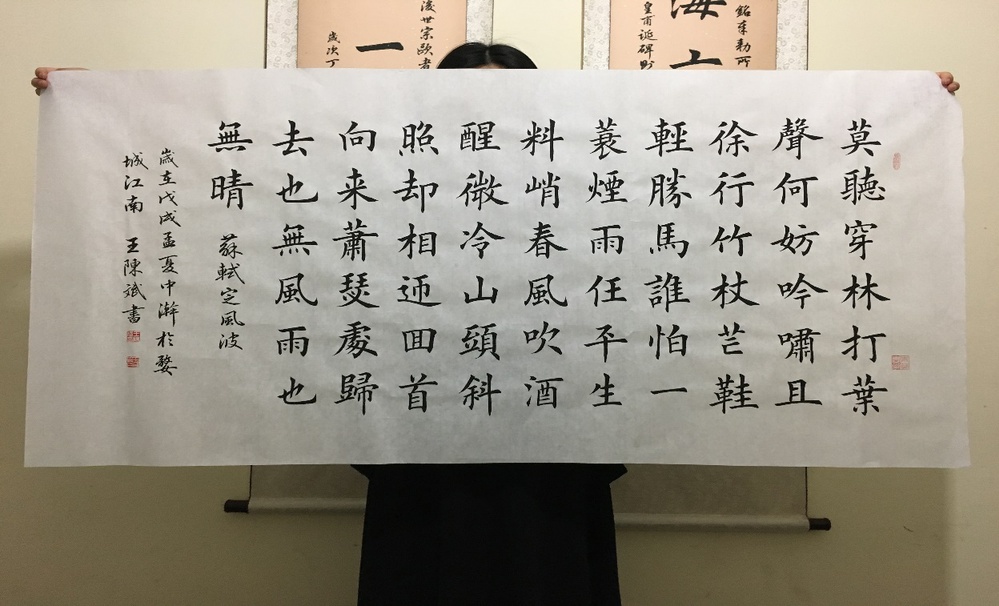 莫聽穿林打葉
聲何妨吟嘯且
徐行竹杖芒鞋
輕勝馬誰怕一
蓑煙雨任平生
料峭春風吹酒
醒微冷山頭斜
照却相迎回首
向来蕭瑟處歸
去也無風雨也
無晴
蘇軾定風波
歲在戊戌孟夏中澣於婺
城江南 王陳斌書
皇甫誕碑
海
世宗歐者
一
歲次丁